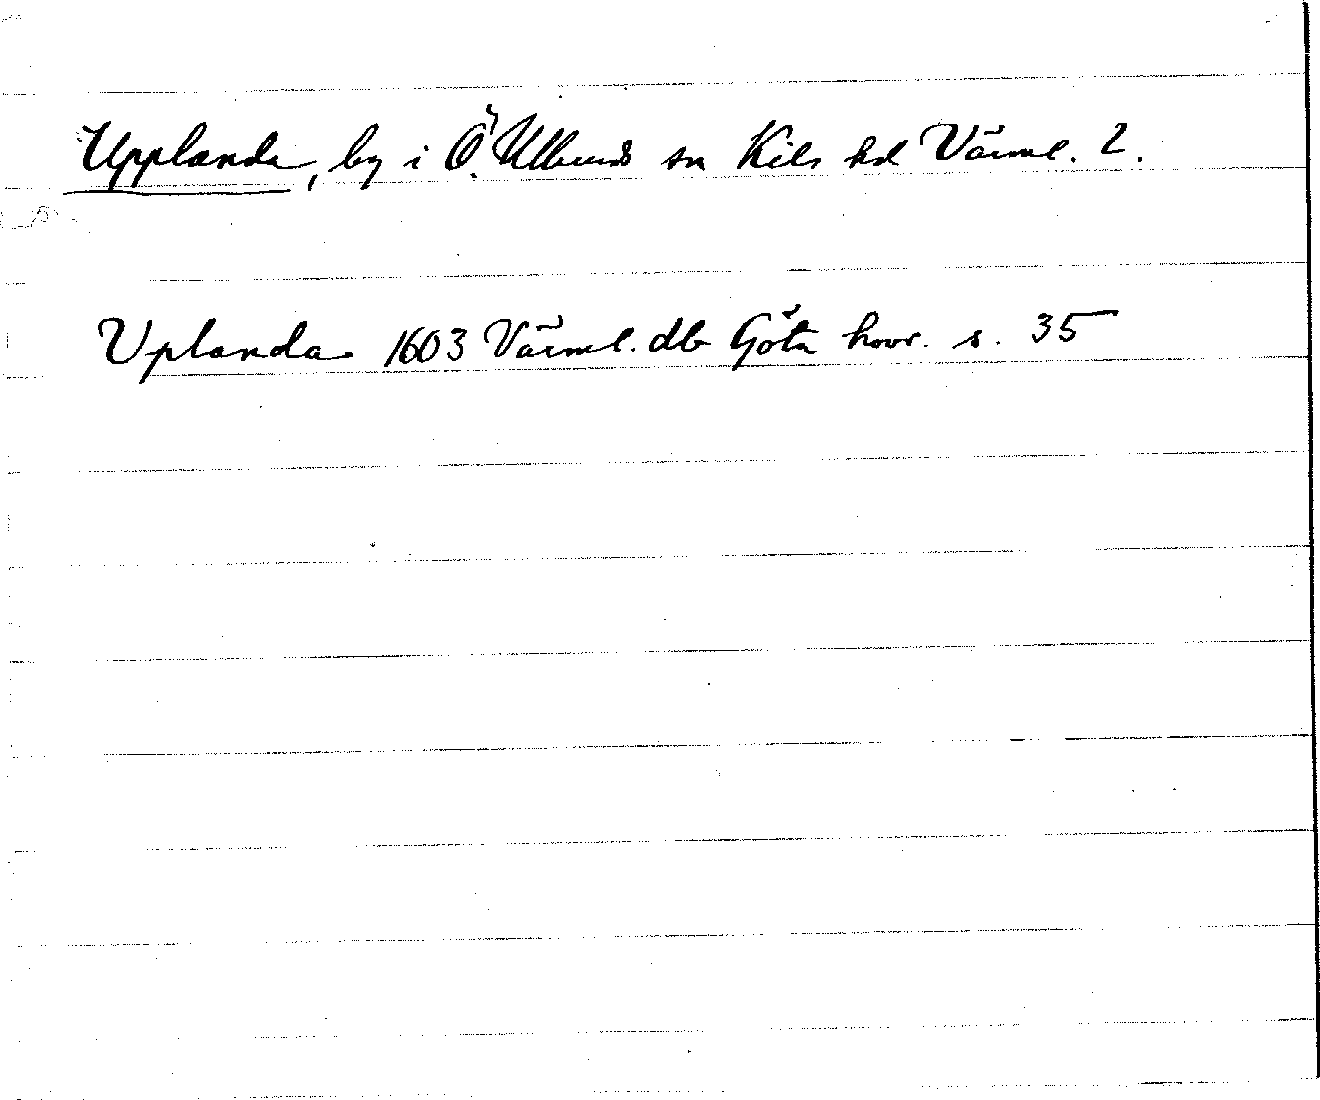 Upplanda, by i Ö. Ullerud sn Kils hd Värml. l.
Uplanda 1603 Värml. db Göta hovr. s. 35